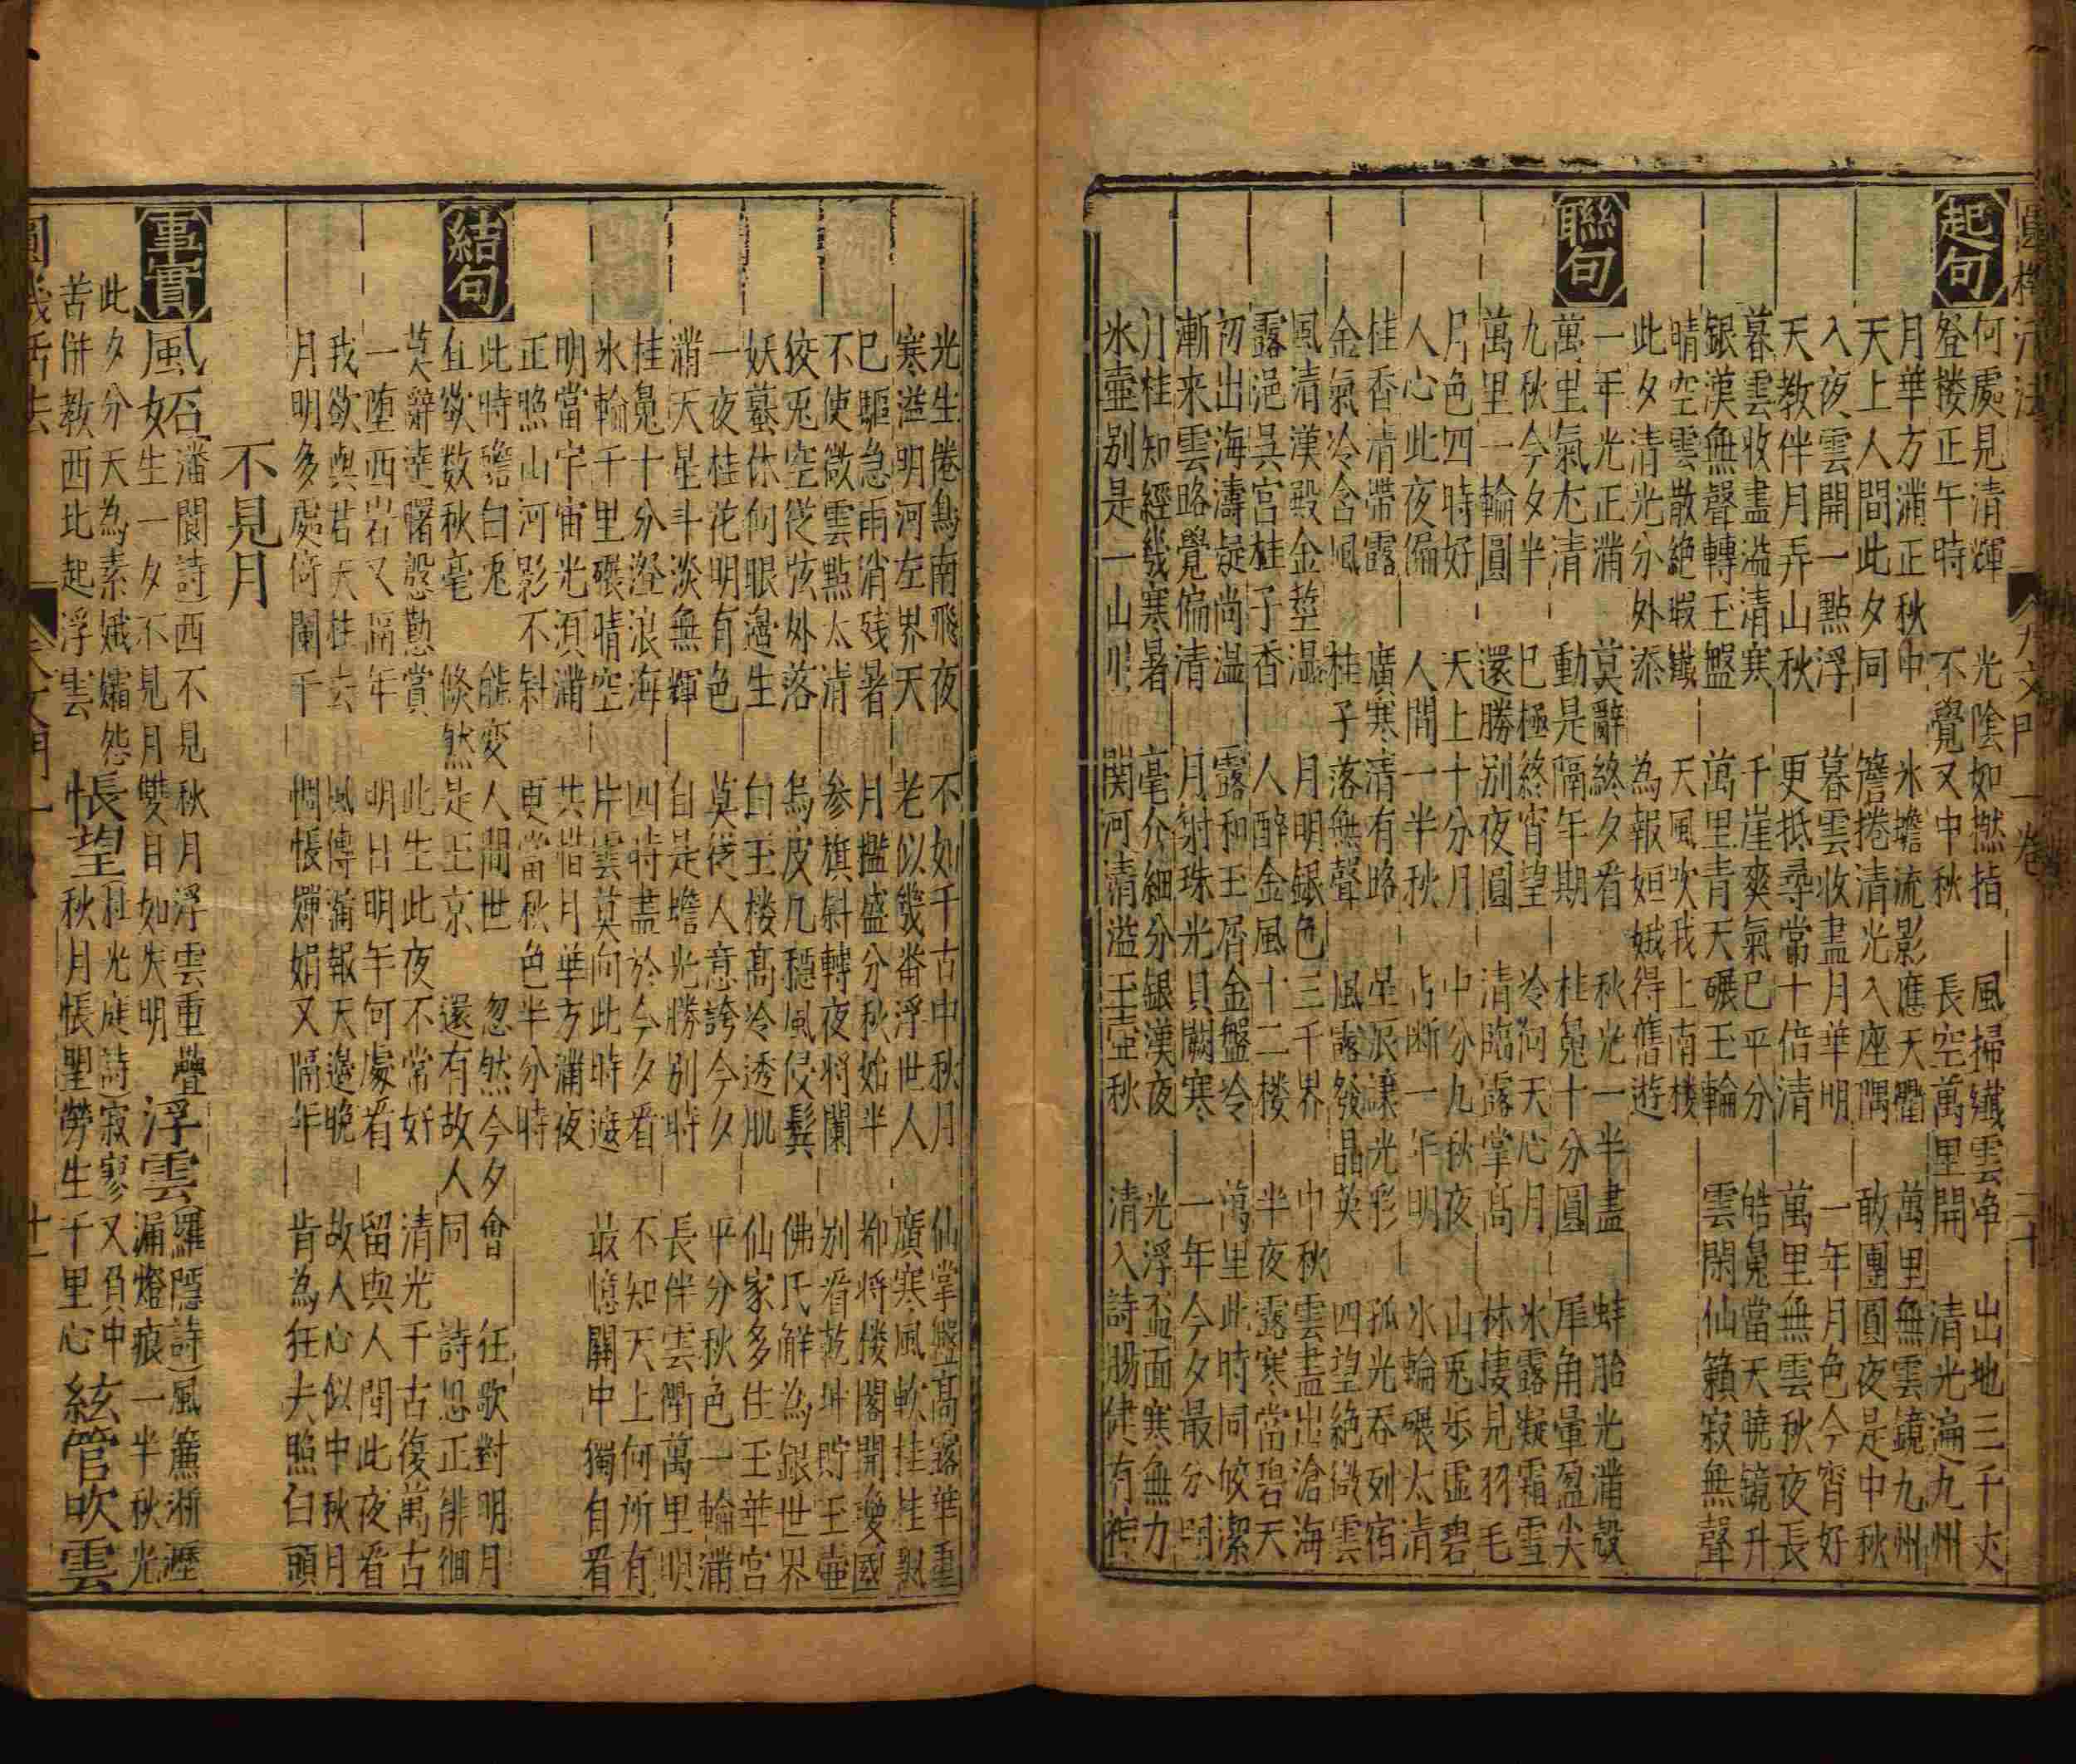 起句
何處見清輝 光陰如撚指 風掃纎雲净 出地三千丈
登楼正午時 不覺又中秋 長空萬里開 清光遍九州
月華方滿正秋中 氷蟾流影應天衢 萬里無雲鏡九州
天上人間此夕同 簷捲清光入座隅 敢團圓夜是中秋
入夜雲開一點浮 暮雲收盡月華明 一年月色今宵好
天教伴月弄山秋 更抵尋常十倍清 萬里無雲秋夜長
暮雲收盡溢清寒 千崖爽氣巳平分 皓鬼當天曉鏡升
銀漢無聲轉玉盤 萬里青天碾玉輪 雲閑仙籟寂無聲
晴空雲散絶瑕纎 天風吹我上南楼
此夕清光分外添 為報姮娥得舊遊
聯句
一年光正滿 莫辭終夕看 秋光一半盡 蚌胎光滿殼
萬里氣尤清 動是隔年期 桂鬼十分圓 犀角暈盈尖
九秋今夕半 巳極終宵望 冷向天心月 氷露凝霜雪
萬里一輪圓 還勝别夜圓 清臨露掌高 林棲見羽毛
片色四時好 天上十分月 中分九秋夜 山兎步虚碧
人心此夜偏 人間一半秋 占断一年明 氷輪碾太清
桂香清帶露 廣寒清有路 星辰讓光彩 孤光吞列宿
金氣冷含風 桂子落無聲 風露發晶英 四望絶㣲雲
風清漢殿金莖濕 月明銀色三千界 中秋雲盡出滄海
露浥吳宮桂子香 人醉金風十二楼 半夜露寒當碧天
初出海濤疑尚温 露和玉屑金盤冷 萬里此時同皎潔
漸来雲路覺偏清 月射珠光貝闕寒 一年今夕最分明
月桂知經幾寒暑 毫介細分銀漢夜 光浮盃面寒無力
氷壷别是一山川 関河清溢玉壷秋 清入詩腸健有神
光生倦鳥南飛夜 不如千古中秋月 仙掌盤高露華重
寒溢明河左界天 老似幾番浮世人 廣寒風軟桂枝飄
巳驅急雨消残暑 月檻盛分秋始半 却将楼閣開變國
不使㣲雲點太清 参旗斜轉夜将闌 别看乾坤貯玉壷
狡兎空從弦外落 烏皮几穩風侵鬂 佛氏解為銀世界
妖蟇休向眼邉生 白玉楼高冷透肌 仙家多住玉華宫
一夜桂花明有色 莫從人意誇今夕 平分秋色一輪滿
滿天星斗淡無輝 自是蟾光勝别時 長伴雲衢萬里明
桂鬼十分澄浪海 四時盡於今夕看 不知天上何所有
氷輪千里碾晴空 片雲莫向此時遮 敢憶關中獨自看
明當宇宙光湏滿 共惜月華方滿夜
正照山河影不斜 更當秋色半分時
結句
此時瞻白兎 能變人間世 忽然今夕會 狂歌對明月
直欲数秋毫 倐然是玉京 還有故人同 詩思正徘徊
莫辭達曙慇懃賞 此生此夜不常好 清光千古復萬古
一墮西岩又隔年 明日明年何處看 留與人間此夜看
我欲與君天柱去 風傳滿報天邉晚 故人心似中秋月
月明多處倚闌干 惆悵嬋娟又隔年 肯為狂夫照白頭
不見月
事實
風妬潘閬詩西不見秋月浮雲重疊
石女生一夕不見月雙目如失明 浮雲羅隱詩風簾淅瀝
漏燈痕一半秋光
此夕分天為素娥孀怨
苦併教西北起浮雲 悵望杜光庭詩寂寥又負中
秋月悵望勞生千里心 絃管吹雲